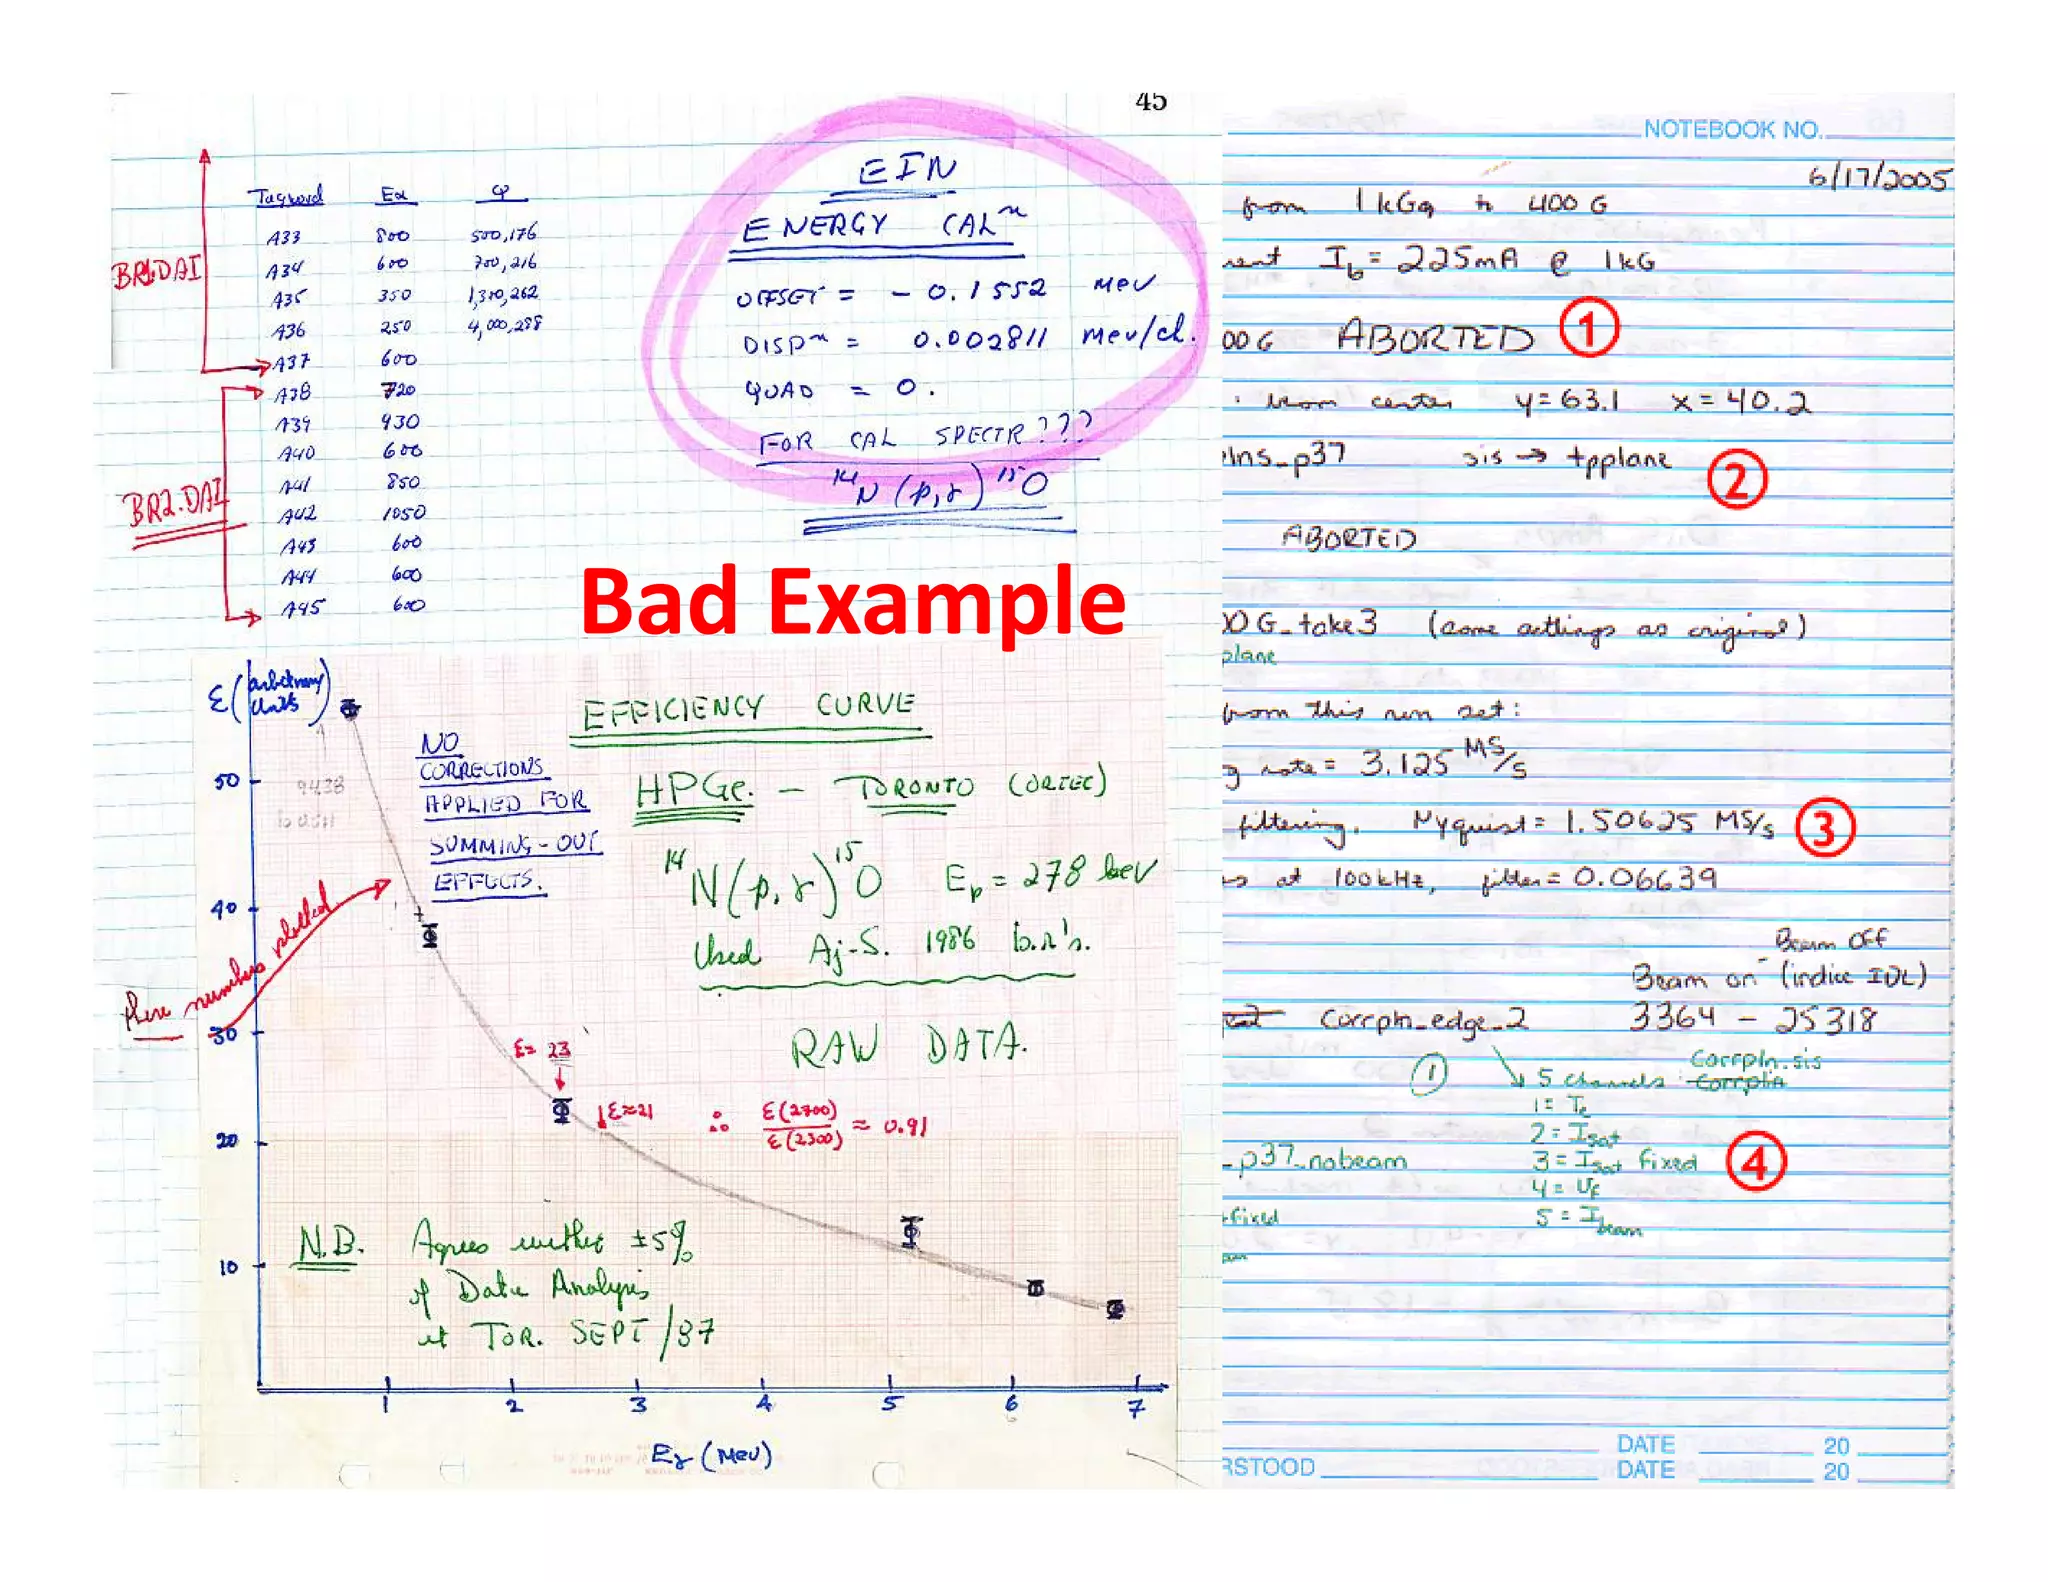 45
Tagword Eα Q
A33 800 500,176
A34 600 700,216
A35 350 1,310,262
A36 250 4,000,288
A37 600
A38 720
A39 930
A40 600
A41 850
A42 1050
A43 600
A44 600
A45 600
BR1.DAI
BR2.DAI
EIN
ENERGY CALⁿ
OFFSET = - 0.1552 MeV
DISPⁿ = 0.002811 MeV/ch.
QUAD = 0.
FOR CAL SPECTR???
¹⁴N (p,γ) ¹⁵O
Bad Example
ε (arbitrary units)
EFFICIENCY CURVE
NO
CORRECTIONS
APPLIED FOR
SUMMING-OUT
EFFECTS.
HPGe. – TORONTO (ORTEC)
¹⁴N(p,γ)¹⁵O Ep = 278 keV
Used Aj-S. 1986 b.r's.
RAW DATA.
numbers plotted
ε= 23
ε≈21 ∴ ε(2700)/ε(2300) ≈ 0.91
N.B. Agrees within ±5%
of Data Analysis
at TOR. SEPT/87
50
40
30
20
10
1 2 3 4 5 6 7
Eγ (MeV)
NOTEBOOK NO.
6/17/2005
from 1 kG to 400 G
Ib = 225mA @ 1kG
00 G ABORTED ①
beam center y=63.1 x=40.2
lns_p37 sis → tpplane ②
ABORTED
00 G_take3 (same settings as original)
plane
from this run set:
g rate = 3.125 MS/s
filtering, Nyquist = 1.50625 MS/s ③
at 100kHz, filter = 0.06639
Beam off
Beam on (indice IDL)
Corrpln_edge_2 3364 - 25318
① 5 channels: Corrpln.sis
Corrpln
1 = Te
2 = Isat
_p37_nobeam 3 = Isat fixed ④
4 = Vf
fixed 5 = Ibeam
DATE 20
RSTOOD DATE 20